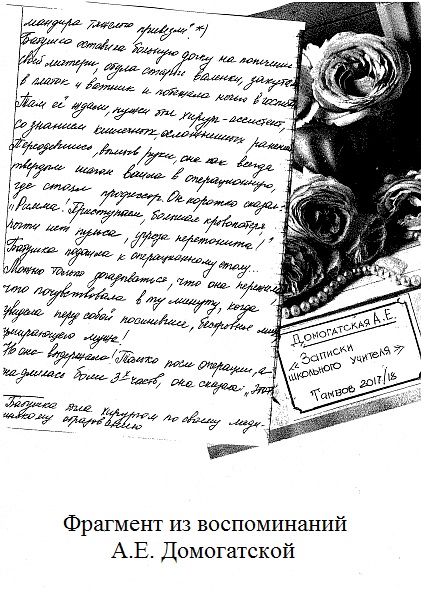 мандира тяжелого привезли." *)
Бабушка оставила больную дочку на попечение
своей матери, обула старые валенки, закутал
в платок и ватник и побежала ночью в госпит
Там её ждали, нужен был хирург-ассистент,
со знанием кишечных осложнений ранения.
Переодевшись, вымыв руки, она как всегда
твердым шагом вошла в операционную,
где стоял профессор. Он коротко сказал:
"Римма! Приступаем, большая кровопотеря
почти нет пульса, угроза перетонита!"
Бабушка подошла к операционному столу...
Можно только догадываться, что она пережила,
что почувствовала в ту минуту, когда
увидала перед собой посиневшее, бескровное лицо
умирающего мужа!
Но она выдержала! Только после операции, а
она длилась более 3х часов, она сказала: "Этот
Бабушка была хирургом по своему меди-
цинскому образованию
Домогатская А.Е.
«Записки
школьного учителя»
Тамбов 2017/18
Фрагмент из воспоминаний
А.Е. Домогатской